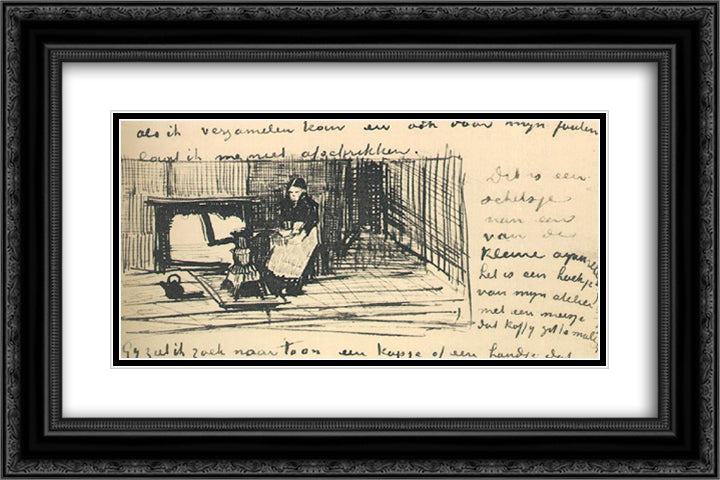 als ik verzamelen kan en ook door mijn fouten
laat ik me niet afschrikken.
Dit is een
schetsje
van een
van de
kleine aquarellen
het is een hoekje
van mijn atelier
met een meisje
dat koffij zit te malen
Gij ziet ik zoek naar toon een kopje of een handje dat